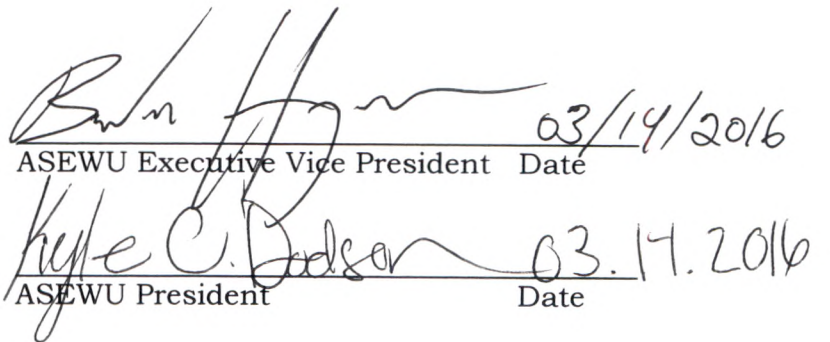 03/14/2016
ASEWU Executive Vice President Date
Kyle C. Dodson 03.14.2016
ASEWU President Date